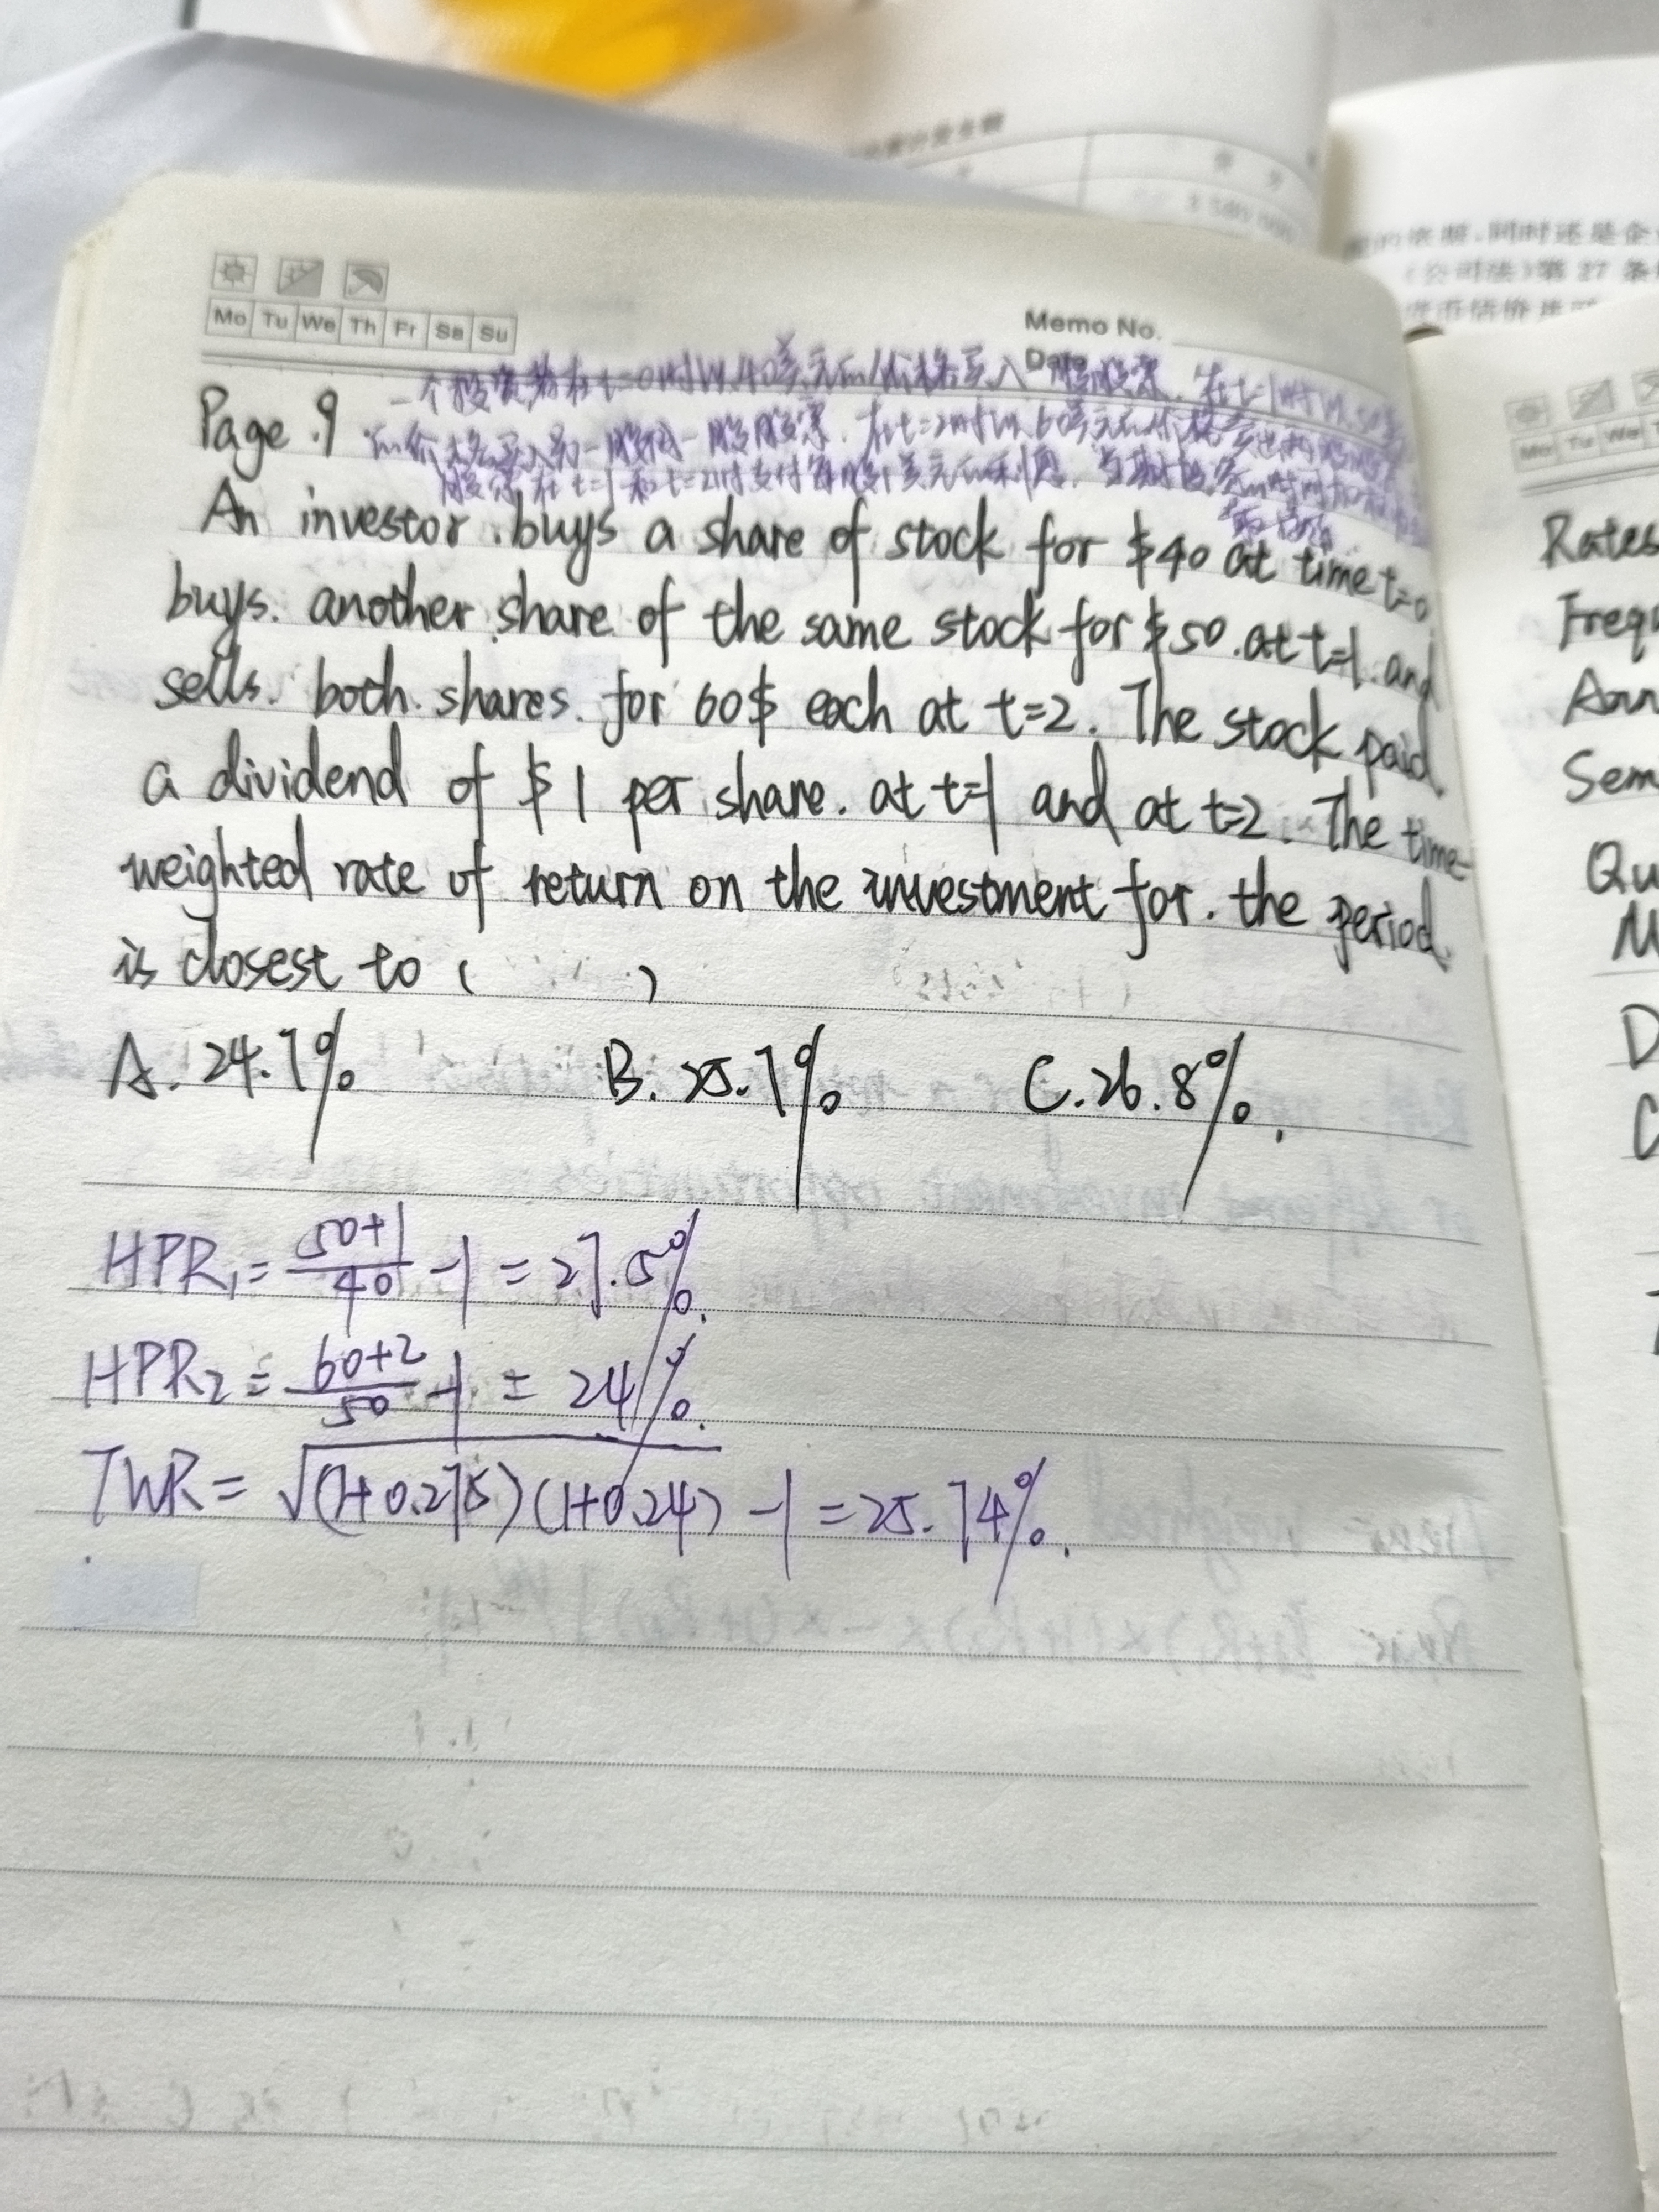 Mo Tu We Th Fr Sa Su
Memo No.
Date
一个投资者在t=0时以40美元的价格买入一股股票,在t=1时以50美
Page .9 的价格买入另一股同一股股票.在t=2时以60美元的价格
股票在t=1和t=2时支付每股1美元的利息.
An investor .buys a share of stock for $40 at time t=0
buys. another share of the same stock for $50 .at t=1. and
sells. both. shares. for 60$ each at t=2. The stock paid
a dividend of $1 per share. at t=1 and at t=2. The time-
weighted rate of return on the investment for. the period
is closest to ( )
A. 24.7% B. 25.7% C. 26.8%.
HPR₁ = 50+1/40 -1 = 27.5%.
HPR₂ = 60+2/50 -1 = 24%.
TWR = √(1+0.275)(1+0.24) -1 = 25.74%.
同时还是企
《公司法》第 27 条
Mo Tu We
Rates
Freq
Ann
Sem
Qu
M
D
C